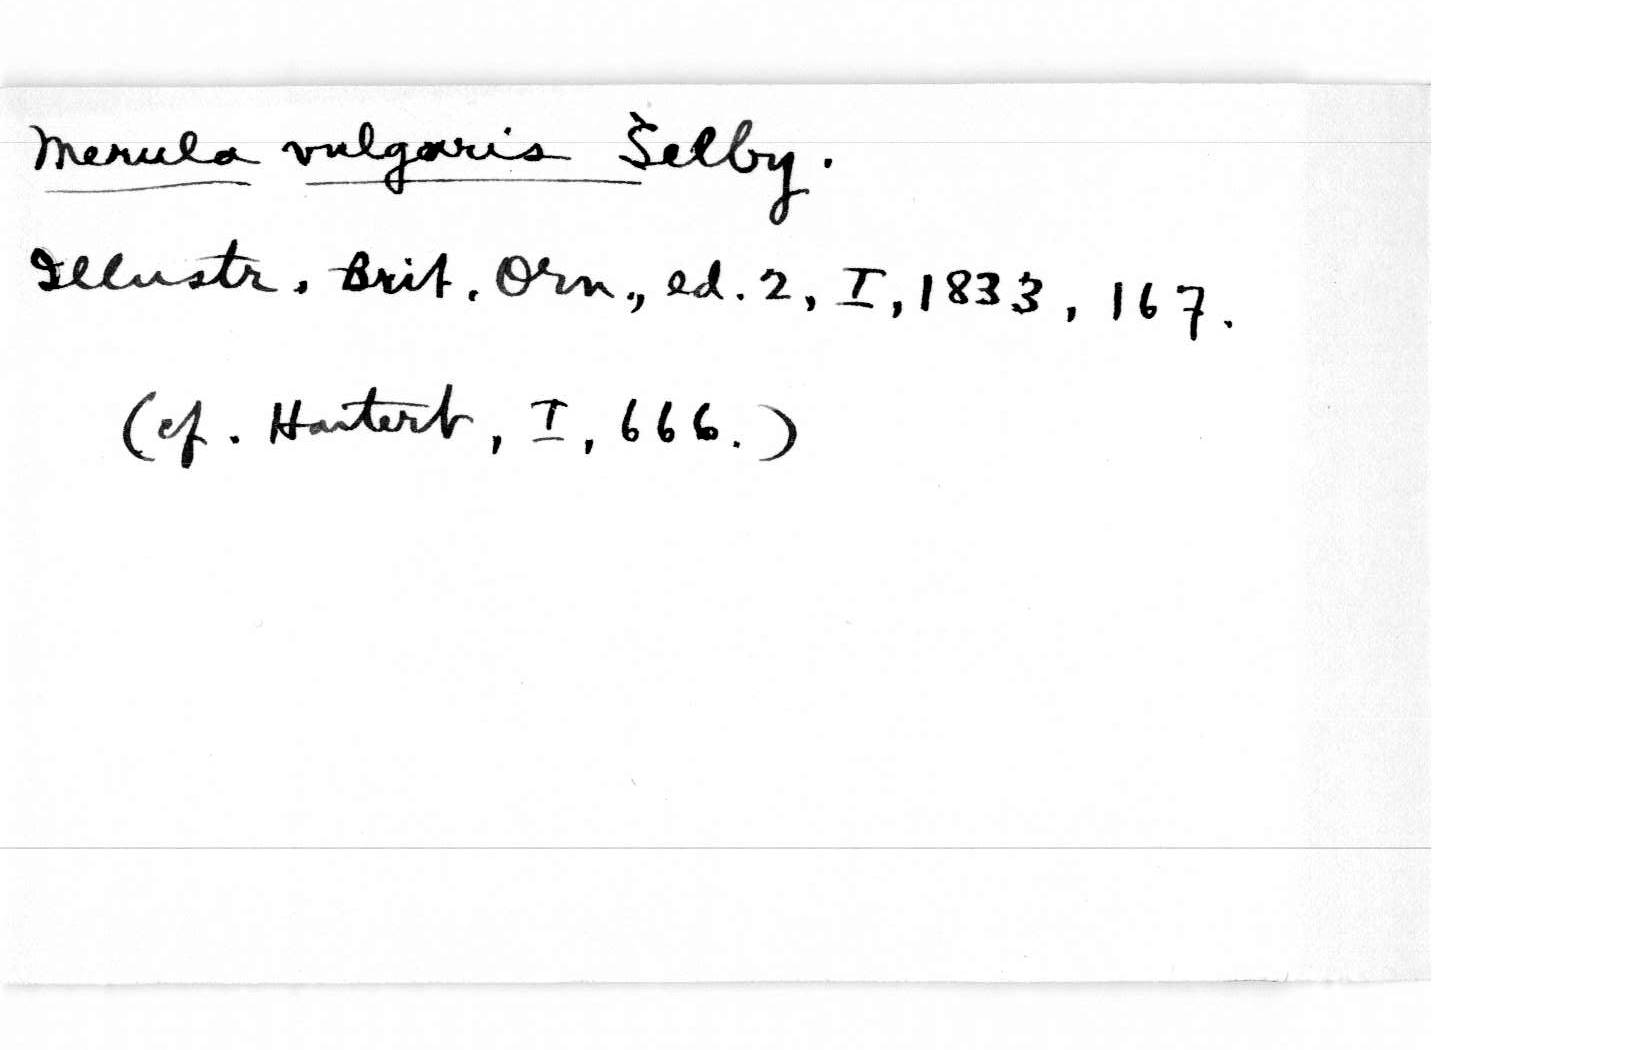 Merula vulgaris Selby.
Illustr. Brit. Orn., ed. 2, I, 1833, 167.
(cf. Hartert, I, 666.)